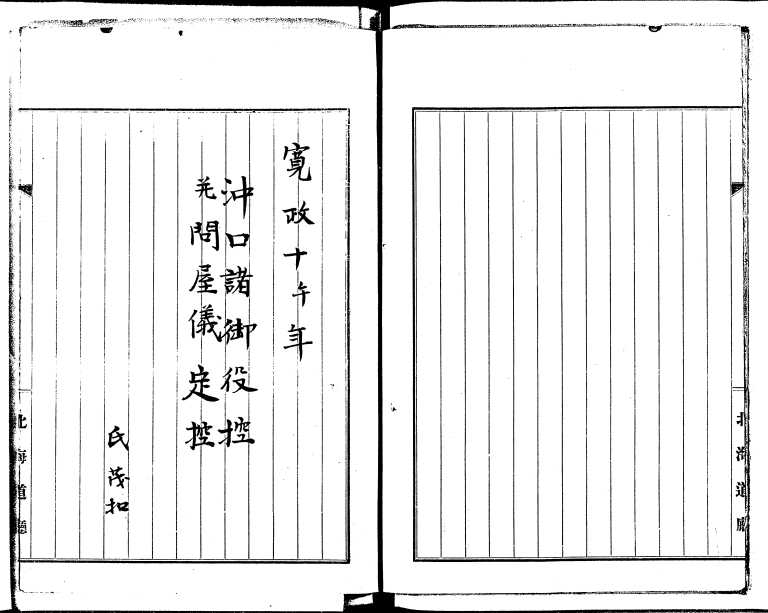 北海道廳
寛政十午年
沖口諸御役控
并問屋儀定控
氏茂扣
北海道廳